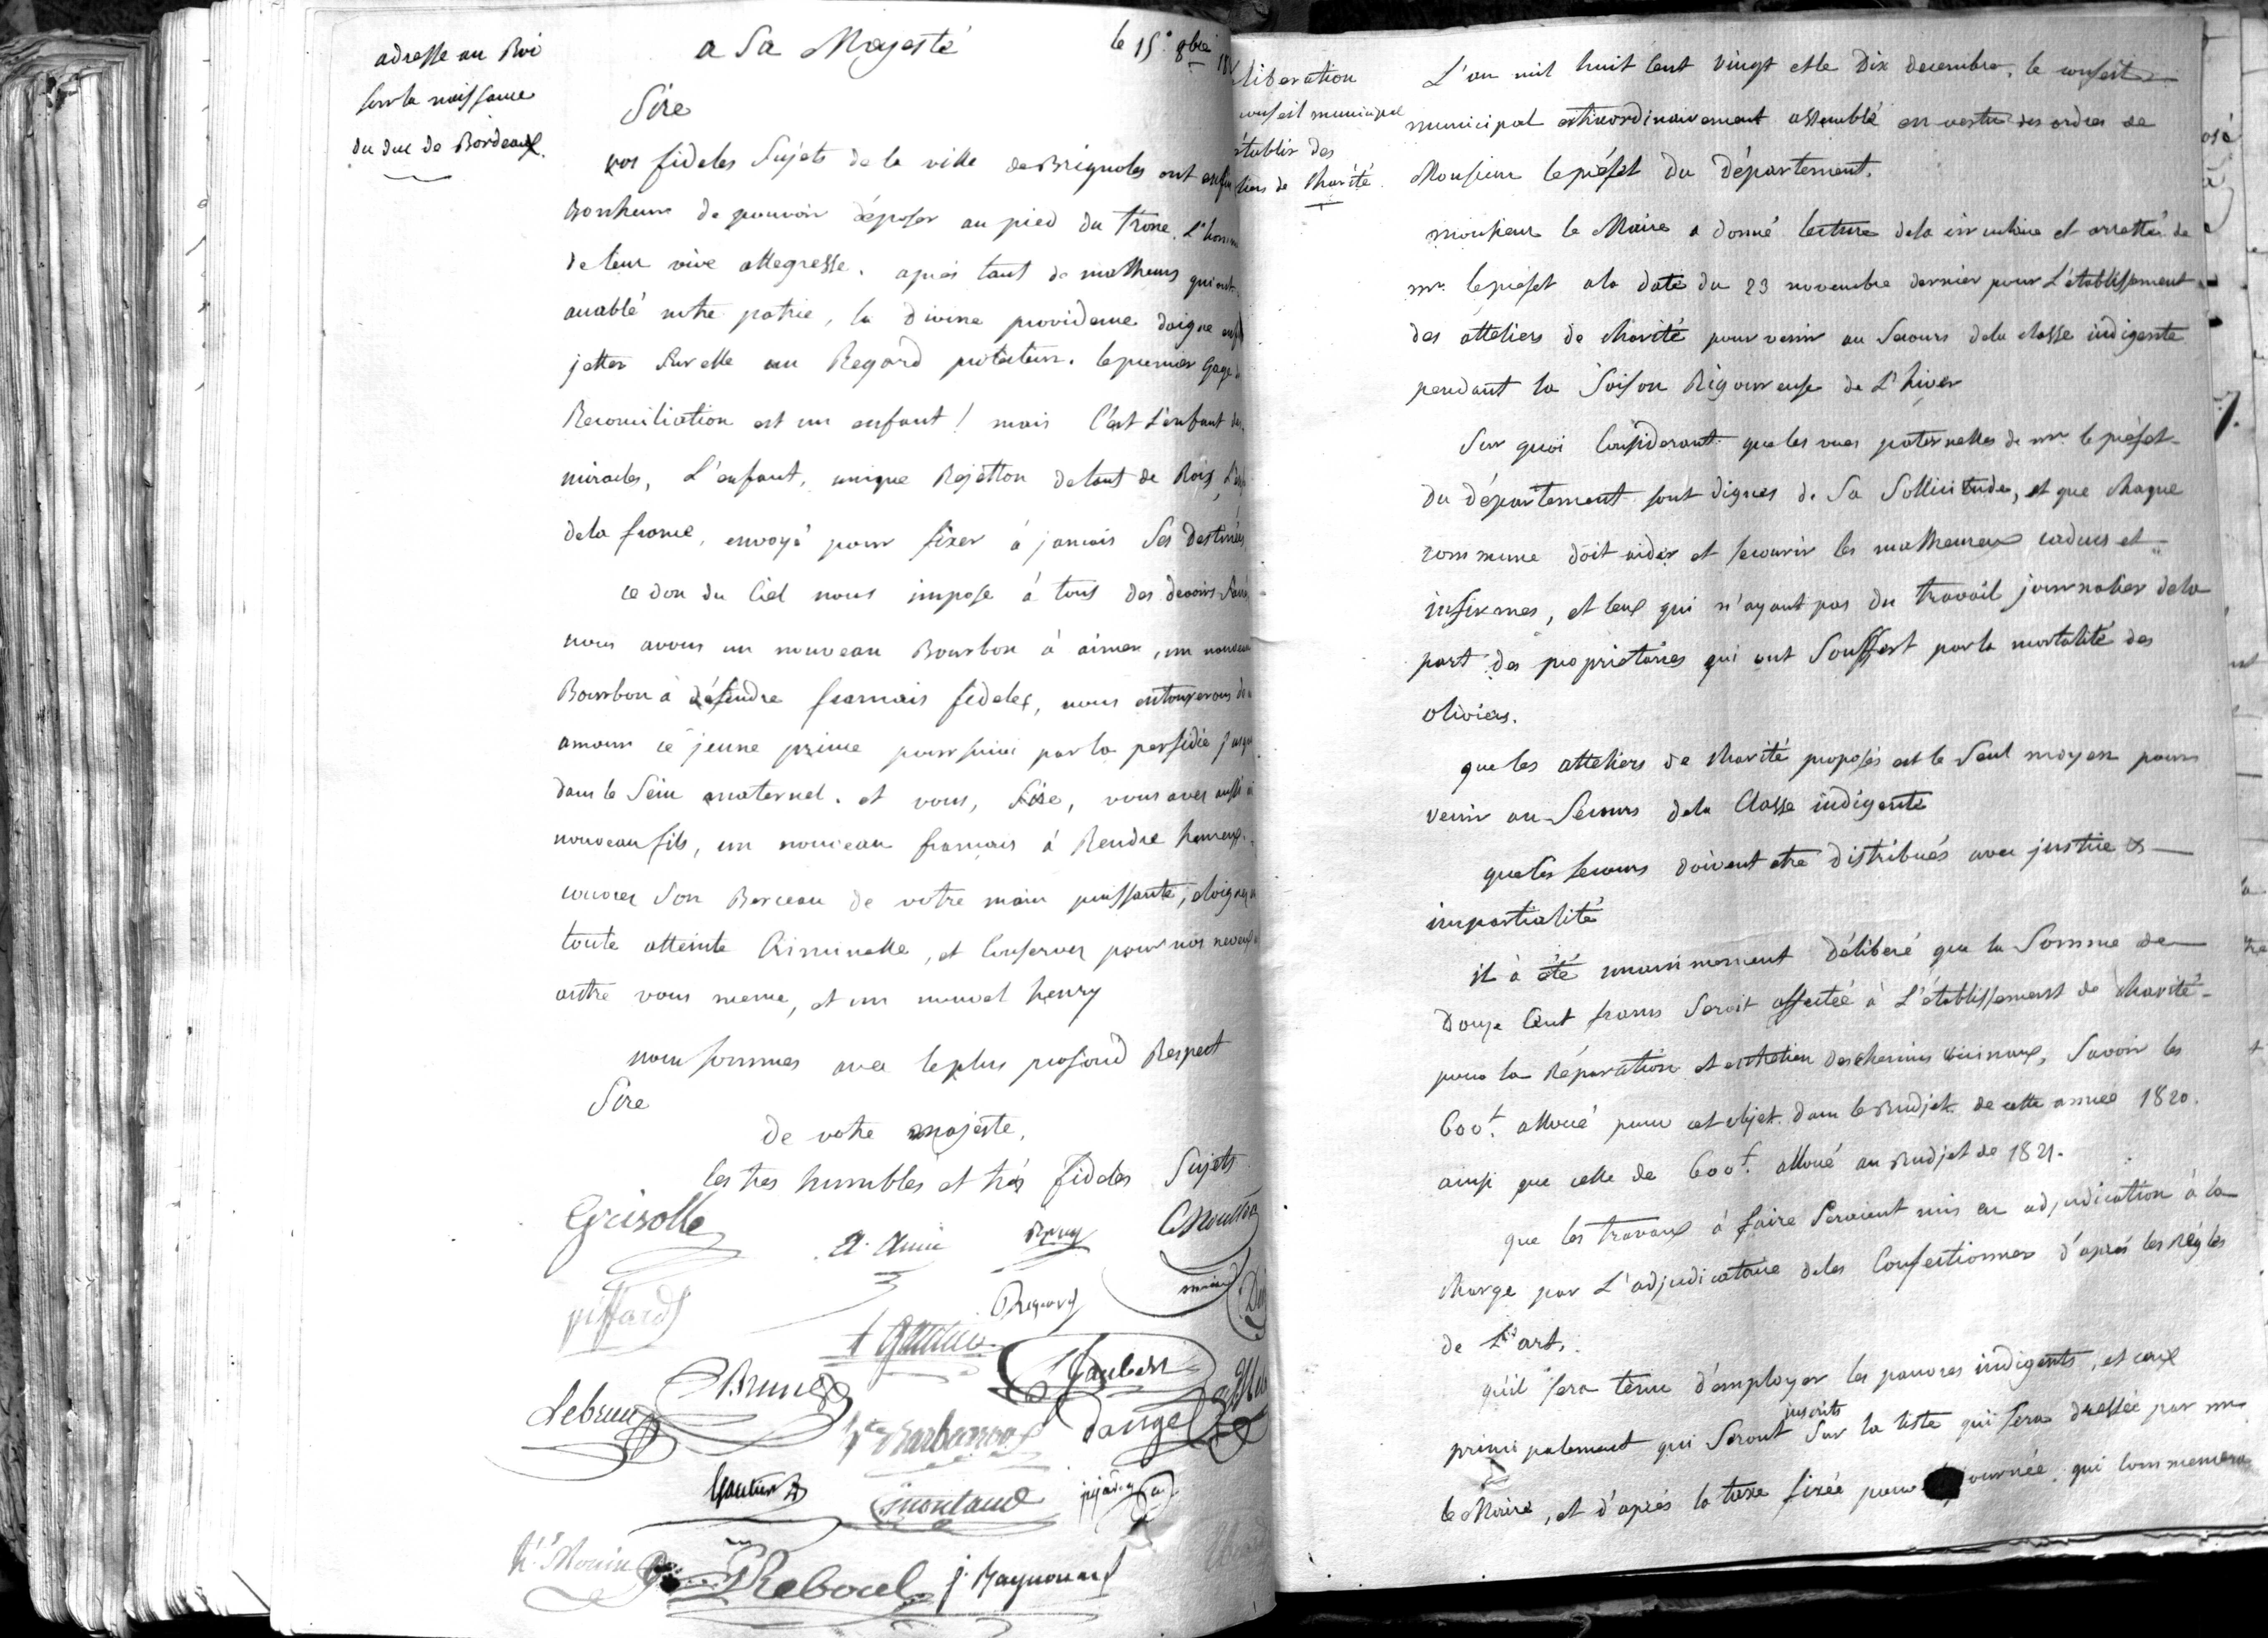 adresse au Roi
sur la naissance
du duc de Bordeaux.
a Sa Majesté
le 15e 8bre
Sire
vos fideles Sujets de la ville de Brignoles ont enfin
Bonheur de pouvoir déposer au pied du Trone. L'hom
de leur vive allegresse. après tant de malheurs qui ont
accablé notre patrie, la Divine providence daigne enfin
jetter Sur elle un Regard protecteur. le premier Gage de
Reconciliation est un enfant ! mais C'est L'enfant des
miracles, L'enfant, unique Rejetton de tant de Rois,
de la france, envoyé pour fixer à jamais Ses Destinées
ce don du Ciel nous impose à tous des devoirs Sacrés
nous avons un nouveau Bourbon à aimer, un nouveau
Bourbon à défendre francais fideles, nous entourerons de
amour ce jeune prince poursuivi par la perfidie jusque
dans le Sein maternel. et vous, Sire, vous avez aussi un
nouveau fils, un nouveau francais à Rendre heureux.
couvrez Son Berceau de votre main puissante, eloignez en
toute atteinte Criminelle, et Conservez pour nos neveux un
autre vous meme, et un nouvel henry
nous sommes avec le plus profond Respect
Sire
De votre majesté,
les tres humbles et très fideles Sujets
Grisolle
a. Amic
piffard
Reynard
maire
Jaubert
Lebrun
Brunet
Barbarroux
Dauge
Gautier
montaud
h.te Mouin
Reboul
j. Raynouard
liberation
conseil municipal
établir des
liers de Charité.
L'an mil huit Cent vingt et le Dix decembre, le conseil
municipal extraordinairement assemblé en vertu des ordres de
Monsieur le préfet du Département.
monsieur le Maire a donné lecture de la circulaire et arretté de
mr. le préfet a la date du 23 novembre dernier pour L'établissement
des atteliers de Charité pour venir au Secours de la classe indigente
pendant la Saison Rigoureuse de L'hiver
Sur quoi Considerant que les vues paternelles de mr. le préfet
du département sont dignes de Sa Sollicitude, et que Chaque
commune doit aider et secourir les malheureux caducs et
infirmes, et Ceux qui n'ayant pas du travail journalier de la
part des proprietaires qui ont Souffert par la mortalité des
oliviers.
que les atteliers de Charité proposés est le Seul moyen pour
venir au Secours de la Classe indigente
que les secours doivent etre distribués avec justice et
impartialité
il à été unanimement Déliberé que la Somme de
Douze Cent francs Seroit affectée à L'établissement de Charité
pour la Réparation et entretien des chemins vicinaux, Savoir les
600f. alloué pour cet objet dans le Budjet de cette année 1820.
ainsi que celle de 600f. alloué au Budjet de 1821.
que les travaux à faire Seroient mis en adjudication à la
Charge par L'adjudicataire de les Confectionner d'après les Régles
de L'art.
qu'il sera tenu d'employer les pauvres indigents, et ceux
inscrits
principalement qui Seront Sur la liste qui sera dressée par mr
le Maire, et d'après la taxe fixée pour journée. qui Commencera